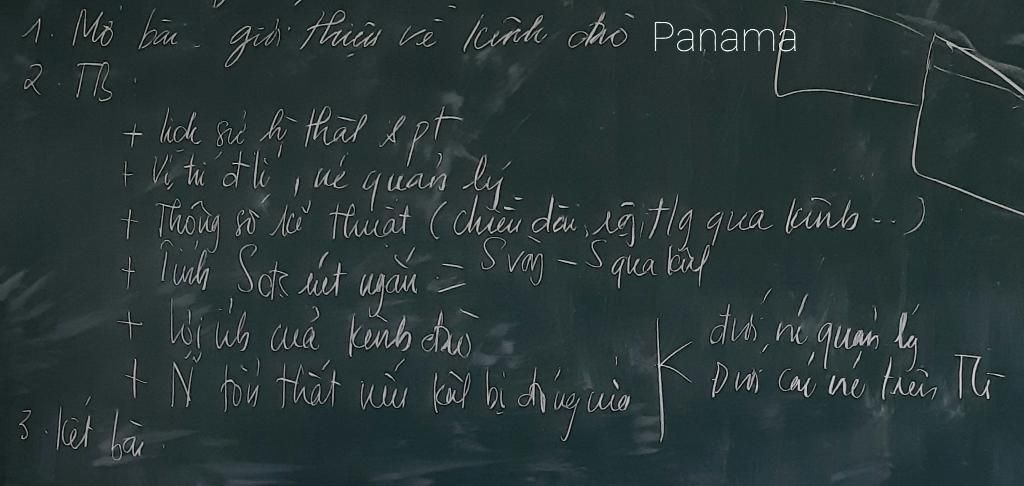 1. Mở bài - giới thiệu về kênh đào Panama
2. TB.
+ lịch sử hình thành & pt
+ Vị trí đlí, nc quản lý
+ Thông số kĩ thuật (chiều dài, rộg, t/g qua kênh...)
+ Tính S rút ngắn = S vòg - S qua kênh
+ Lợi ích của kênh đào
+ N~ tổn thất nếu kênh bị đóng cửa
đvới nc quản lý
Đvới các nc trên TG
3. Kết bài.